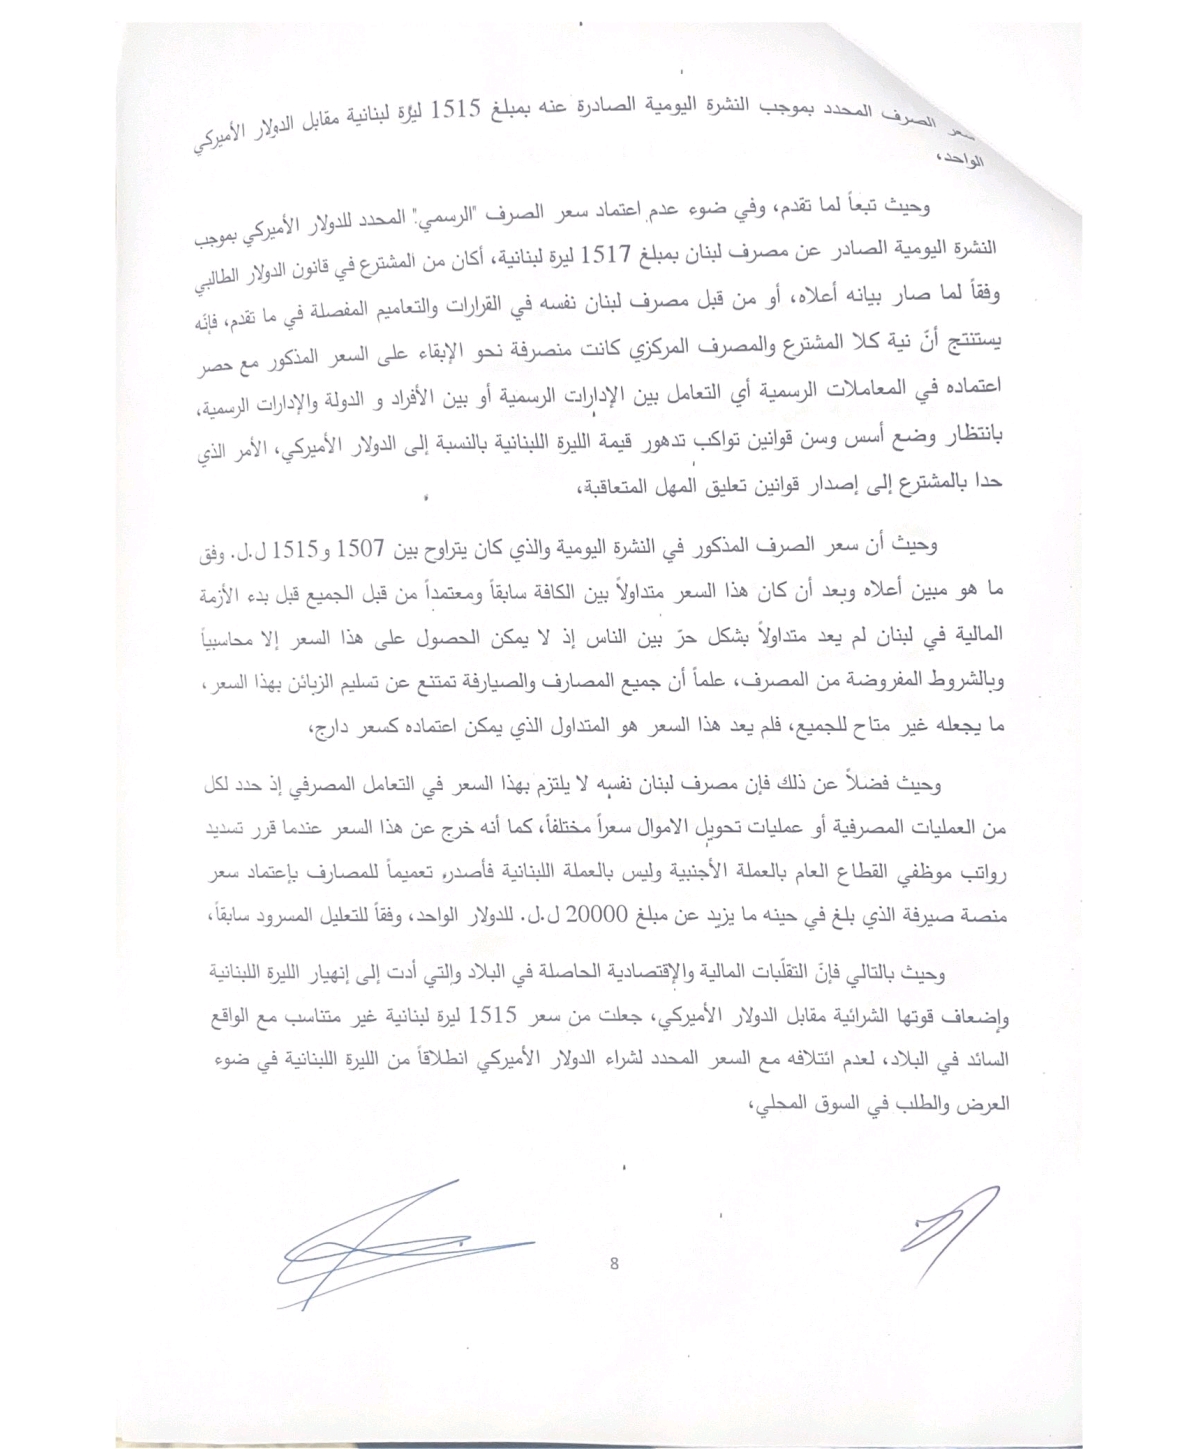 سعر الصرف المحدد بموجب النشرة اليومية الصادرة عنه بمبلغ 1515 ليرة لبنانية مقابل الدولار الأميركي
الواحد،
وحيث تبعاً لما تقدم، وفي ضوء عدم اعتماد سعر الصرف "الرسمي" المحدد للدولار الأميركي بموجب
النشرة اليومية الصادر عن مصرف لبنان بمبلغ 1517 ليرة لبنانية، أكان من المشترع في قانون الدولار الطالبي
وفقاً لما صار بيانه أعلاه، أو من قبل مصرف لبنان نفسه في القرارات والتعاميم المفصلة في ما تقدم، فإنّه
يستنتج أنّ نية كلا المشترع والمصرف المركزي كانت منصرفة نحو الإبقاء على السعر المذكور مع حصر
اعتماده في المعاملات الرسمية أي التعامل بين الإدارات الرسمية أو بين الأفراد و الدولة والإدارات الرسمية،
بانتظار وضع أسس وسن قوانين تواكب تدهور قيمة الليرة اللبنانية بالنسبة إلى الدولار الأميركي، الأمر الذي
حدا بالمشترع إلى إصدار قوانين تعليق المهل المتعاقبة،
وحيث أن سعر الصرف المذكور في النشرة اليومية والذي كان يتراوح بين 1507 و1515 ل.ل. وفق
ما هو مبين أعلاه وبعد أن كان هذا السعر متداولاً بين الكافة سابقاً ومعتمداً من قبل الجميع قبل بدء الأزمة
المالية في لبنان لم يعد متداولاً بشكل حرّ بين الناس إذ لا يمكن الحصول على هذا السعر إلا محاسبياً
وبالشروط المفروضة من المصرف، علماً أن جميع المصارف والصيارفة تمتنع عن تسليم الزبائن بهذا السعر،
ما يجعله غير متاح للجميع، فلم يعد هذا السعر هو المتداول الذي يمكن اعتماده كسعر دارج،
وحيث فضلاً عن ذلك فإن مصرف لبنان نفسه لا يلتزم بهذا السعر في التعامل المصرفي إذ حدد لكل
من العمليات المصرفية أو عمليات تحويل الاموال سعراً مختلفاً، كما أنه خرج عن هذا السعر عندما قرر تسديد
رواتب موظفي القطاع العام بالعملة الأجنبية وليس بالعملة اللبنانية فأصدر تعميماً للمصارف بإعتماد سعر
منصة صيرفة الذي بلغ في حينه ما يزيد عن مبلغ 20000 ل.ل. للدولار الواحد، وفقاً للتعليل المسرود سابقاً،
وحيث بالتالي فإنّ التقلّبات المالية والإقتصادية الحاصلة في البلاد والتي أدت إلى إنهيار الليرة اللبنانية
وإضعاف قوتها الشرائية مقابل الدولار الأميركي، جعلت من سعر 1515 ليرة لبنانية غير متناسب مع الواقع
السائد في البلاد، لعدم ائتلافه مع السعر المحدد لشراء الدولار الأميركي انطلاقاً من الليرة اللبنانية في ضوء
العرض والطلب في السوق المحلي،
8